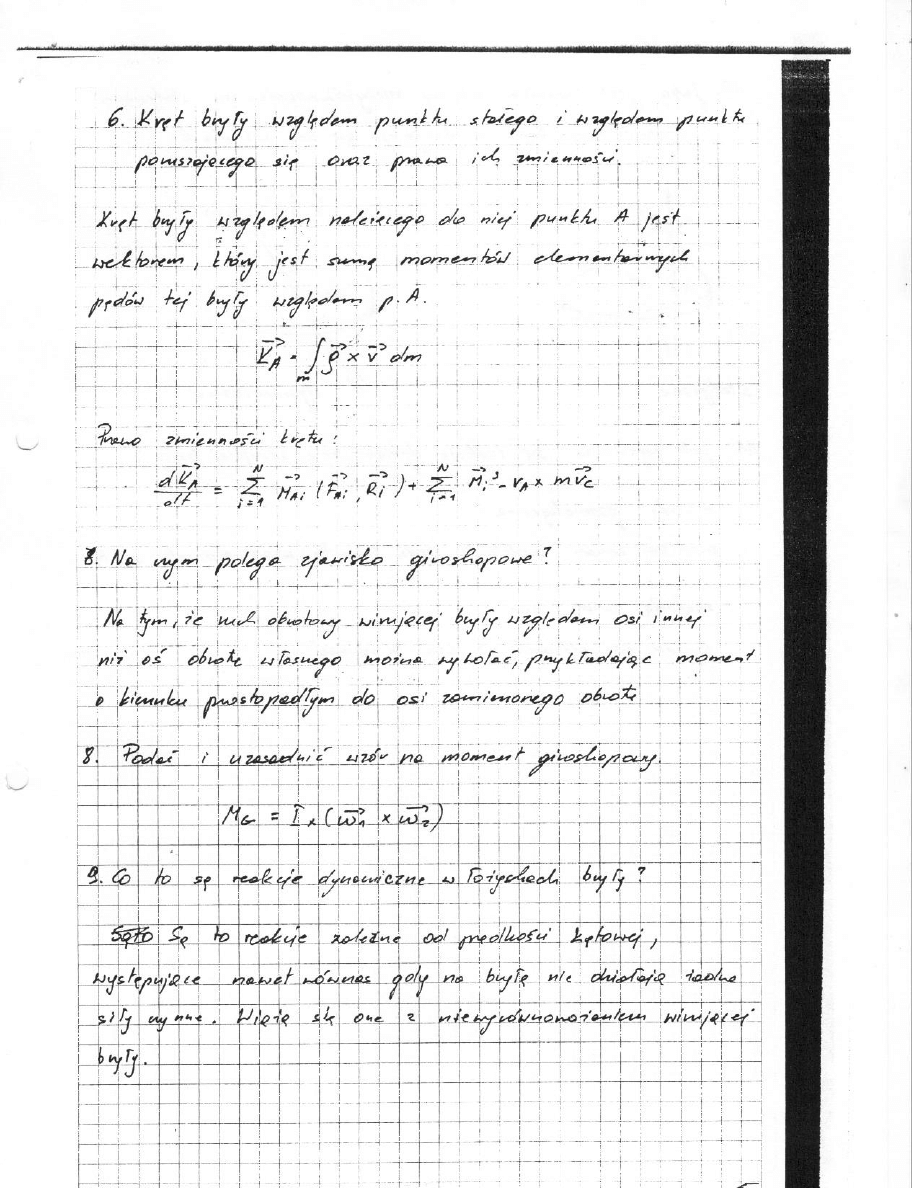 6. Kręt bryły względem punktu stałego i względem punktu
poruszającego się oraz prawa ich zmienności.
Kręt bryły względem należącego do niej punktu A jest
wektorem, który jest sumą momentów elementarnych
pędów tej bryły względem p. A.
K⃗_A = ∫_m ρ⃗ × v⃗ dm
Prawo zmienności krętu:
dK⃗_A/dt = Σ_{i=1}^{N} M⃗_{Ai} (F⃗_{Ai}, R⃗_i) + Σ_{i=1}^{N} M⃗_i^s - v_A × m v⃗_C
8. Na czym polega zjawisko giroskopowe?
Na tym, że ruch obrotowy wirującej bryły względem osi innej
niż oś obrotu własnego można wywołać, przykładając moment
o kierunku prostopadłym do osi zamierzonego obrotu
8. Podać i uzasadnić wzór na moment giroskopowy.
M_G = I_x (ω⃗_1 × ω⃗_2)
9. Co to są reakcje dynamiczne w łożyskach bryły?
Są to Są to reakcje zależne od prędkości kątowej,
występujące nawet wówczas gdy na bryłę nie działają żadne
siły czynne. Wiążą się one z niewyrównoważeniem wirującej
bryły.